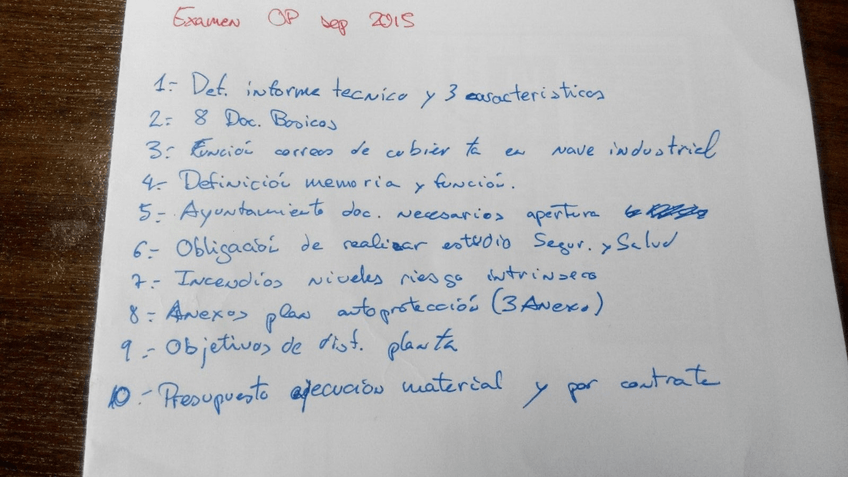 Examen OP sep 2015
1.- Def. informe tecnico y 3 caracteristicas
2.- 8 Doc. Basicos
3.- Función correas de cubierta en nave industrial
4.- Definición memoria y función.
5.- Ayuntamiento doc. necesarios apertura
6.- Obligación de realizar estudio Segur. y Salud
7.- Incendios niveles riesgo intrinseco
8.- Anexos plan autoprotección (3 Anexo)
9.- Objetivos de dist. planta
10.- Presupuesto ejecución material y por contrata